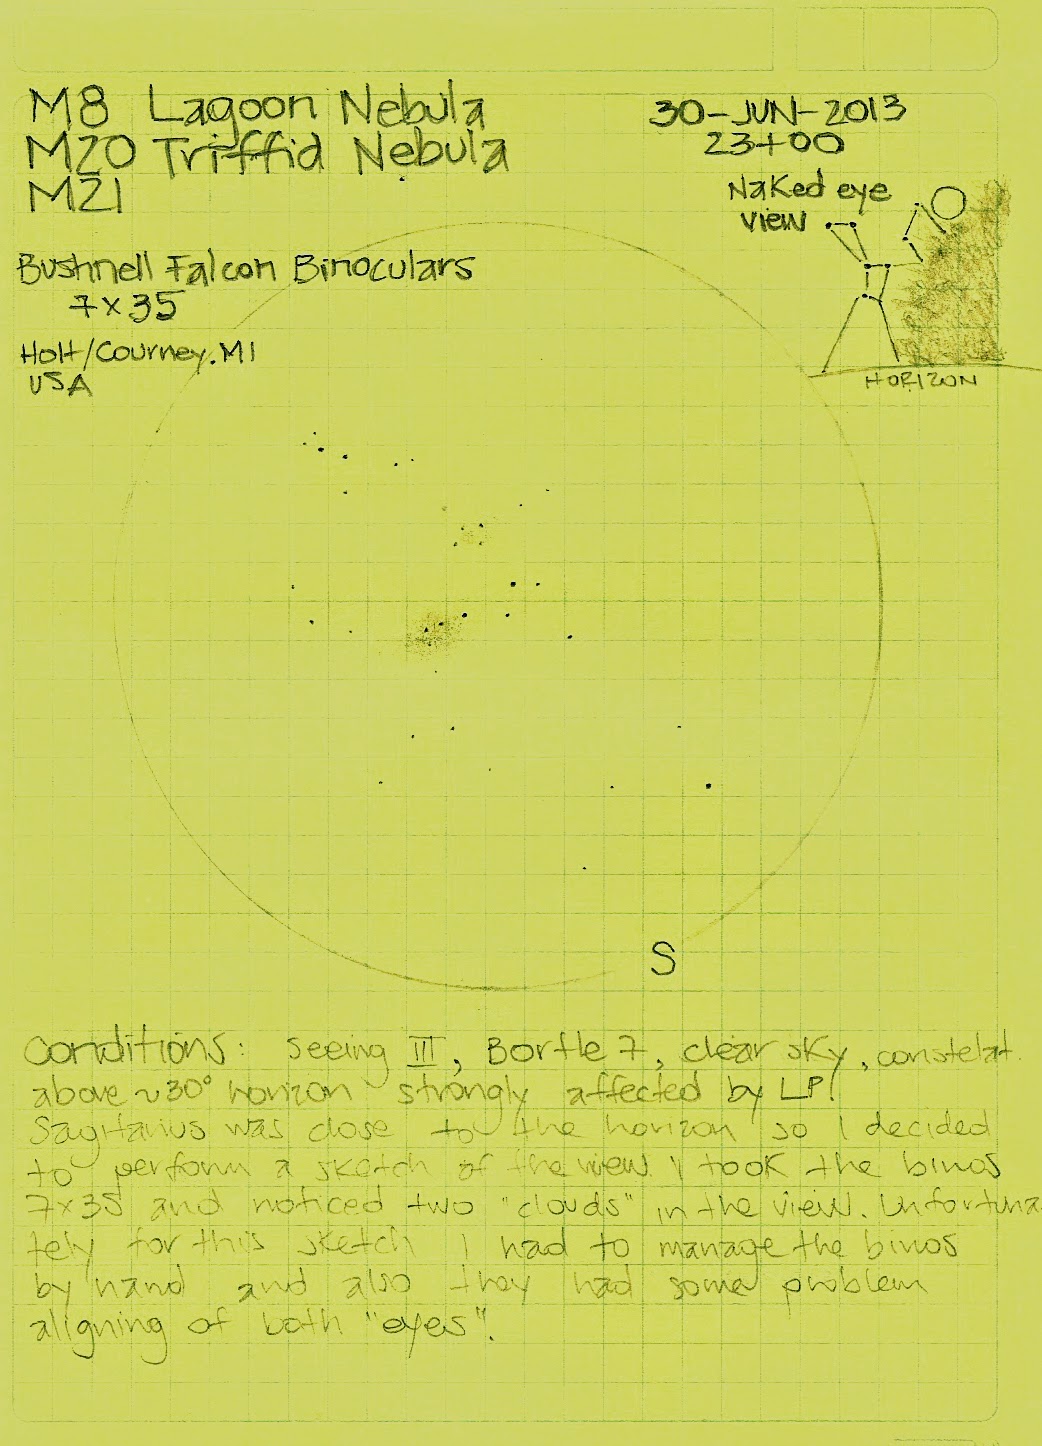 M8 Lagoon Nebula
M20 Triffid Nebula
M21
30-JUN-2013
23+00
Naked eye
view
HORIZON
Bushnell Falcon Binoculars
7x35
Holt/Courney.MI
USA
S
Conditions: Seeing III, Bortle 7, clear sky, constelat.
above ~30° horizon strongly affected by LP!
Sagitarius was close to the horizon so I decided
to perform a sketch of the view. I took the binos
7x35 and noticed two "clouds" in the view. Unfortuna
tely for this sketch I had to manage the binos
by hand and also they had some problem
aligning of both "eyes".